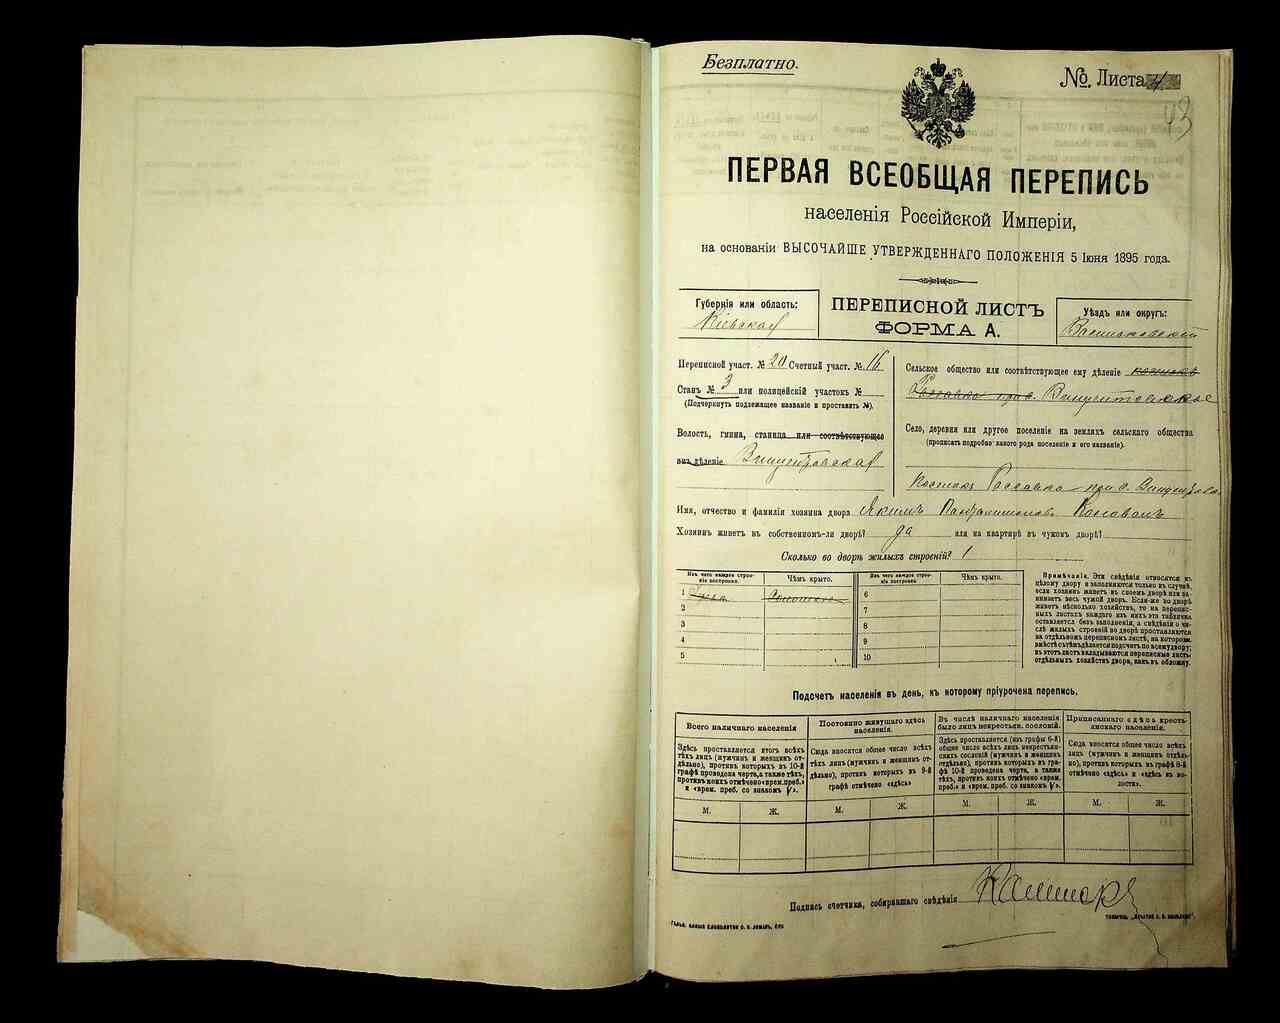 Безплатно.
№ Листа 4
ПЕРВАЯ ВСЕОБЩАЯ ПЕРЕПИСЬ
населенія Россійской Имперіи,
на основаніи ВЫСОЧАЙШЕ УТВЕРЖДЕННАГО ПОЛОЖЕНІЯ 5 Іюня 1895 года.
Губернія или область:
Кіевская
ПЕРЕПИСНОЙ ЛИСТЪ
ФОРМА А.
Уѣздъ или округъ:
Васильковскій
Переписной участ. № 20 Счетный участ. № 16
Станъ № 3 или полицейскій участокъ №
(Подчеркнуть подлежащее названіе и проставить №).
Волость, гмина, станица или соотвѣтствующее
имъ дѣленіе Винцентовская
Сельское общество или соотвѣтствующее ему дѣленіе
Россавка при с. Винцентовское
Село, деревня или другое поселеніе на земляхъ сельскаго общества
(прописать подробно какого рода поселеніе и его названіе).
Россавка при с. Винцентовка
Имя, отчество и фамилія хозяина двора Якимъ Пантелимоновъ Коновалъ
Хозяинъ живетъ въ собственномъ-ли дворѣ? да или на квартирѣ въ чужомъ дворѣ?
Сколько во дворѣ жилыхъ строеній? 1
Изъ чего каждое строеніе построено.
Чѣмъ крыто.
Изъ чего каждое строеніе построено.
Чѣмъ крыто.
1 6
2 7
3 8
4 9
5 10
Примѣчаніе. Эти свѣдѣнія относятся къ
цѣлому двору и заполняются только въ случаѣ,
если хозяинъ живетъ въ своемъ дворѣ или занимаетъ
весь чужой дворъ. Если-же во дворѣ
живетъ нѣсколько хозяйствъ, то на переписныхъ
листахъ каждаго изъ нихъ эта табличка
оставляется безъ заполненія, а свѣдѣнія о числѣ
жилыхъ строеній во дворѣ проставляются
на отдѣльномъ переписномъ листѣ, на которомъ
вмѣстѣ съ тѣмъ дѣлается подсчетъ по всему двору;
въ этотъ листъ вкладываются переписные листы
отдѣльныхъ хозяйствъ двора, какъ въ обложку.
Подсчетъ населенія въ день, къ которому пріурочена перепись.
Всего наличнаго населенія
Здѣсь проставляется итогъ всѣхъ
тѣхъ лицъ (мужчинъ и женщинъ отдѣльно),
противъ которыхъ въ 10-й
графѣ проведена черта, а также тѣхъ,
противъ коихъ отмѣчено «врем. преб.»
и «врем. преб. со знакомъ V».
М. Ж.
Постоянно живущаго здѣсь
населенія.
Сюда вносится общее число всѣхъ
тѣхъ лицъ (мужчинъ и женщинъ отдѣльно),
противъ которыхъ въ 9-й
графѣ отмѣчено «здѣсь»
М. Ж.
Въ числѣ наличнаго населенія
было лицъ некрестьян. сословій.
Здѣсь проставляется (изъ графы 6-й)
общее число всѣхъ лицъ некрестьянскихъ
сословій (мужчинъ и женщинъ
отдѣльно), противъ которыхъ въ графѣ
10-й проведена черта, а также
тѣхъ, противъ коихъ отмѣчено «врем.
преб.» и «врем. преб. со знакомъ V».
М. Ж.
Приписаннаго здѣсь крестьянскаго
населенія.
Сюда вносится общее число всѣхъ
лицъ (мужчинъ и женщинъ отдѣльно),
противъ которыхъ въ графѣ 8-й
отмѣчено «здѣсь» и «здѣсь въ волости».
М. Ж.
Подпись счетчика, собиравшаго свѣдѣнія